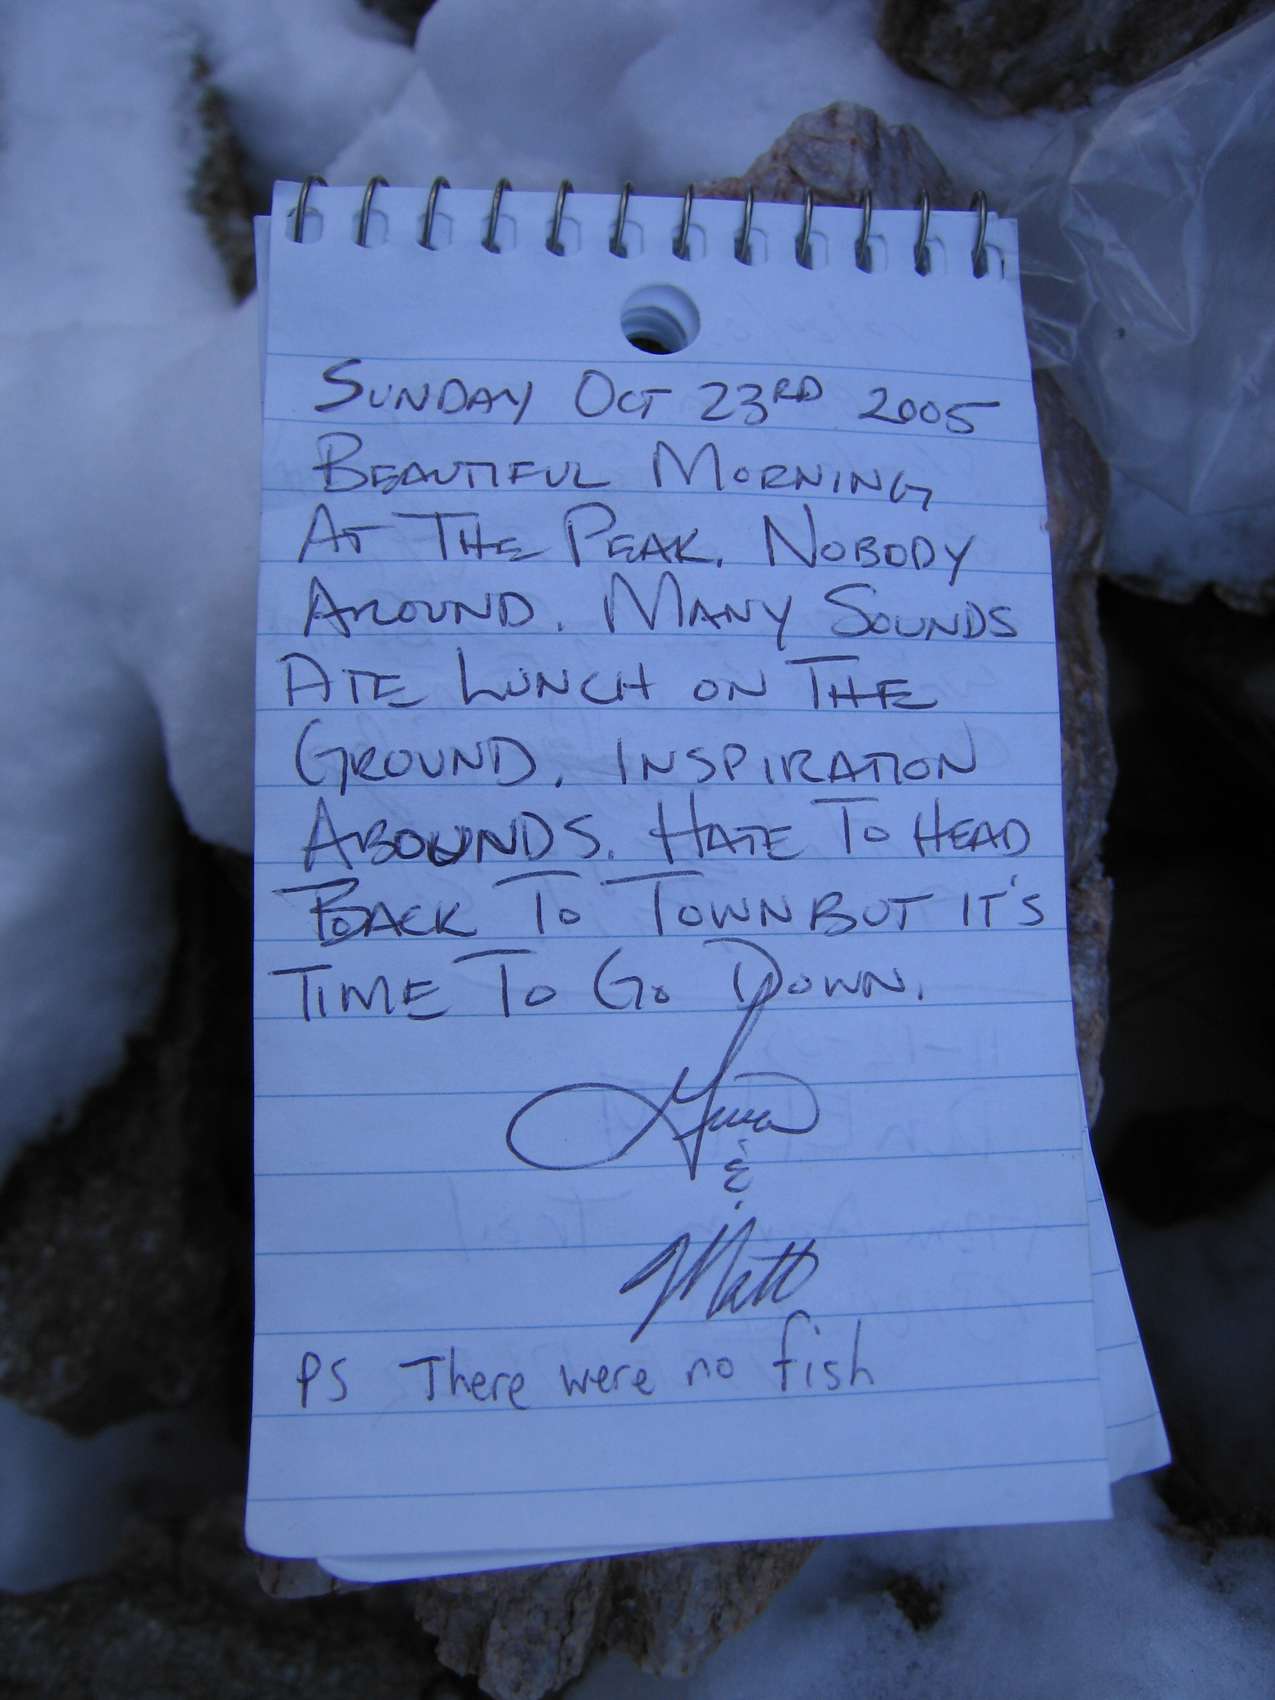 SUNDAY OCT 23RD 2005
BEAUTIFUL MORNING
AT THE PEAK. NOBODY
AROUND. MANY SOUNDS
ATE LUNCH ON THE
GROUND. INSPIRATION
ABOUNDS. HATE TO HEAD
BACK TO TOWN BUT IT'S
TIME TO GO DOWN.
&
Matt
PS There were no fish